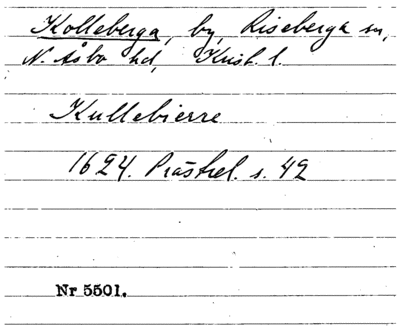 Kolleberga, by, Riseberga sn,
N. Åsbo hd, Krist. l.
Kullebierre
1624. Prästrel. s. 42
Nr 5501.